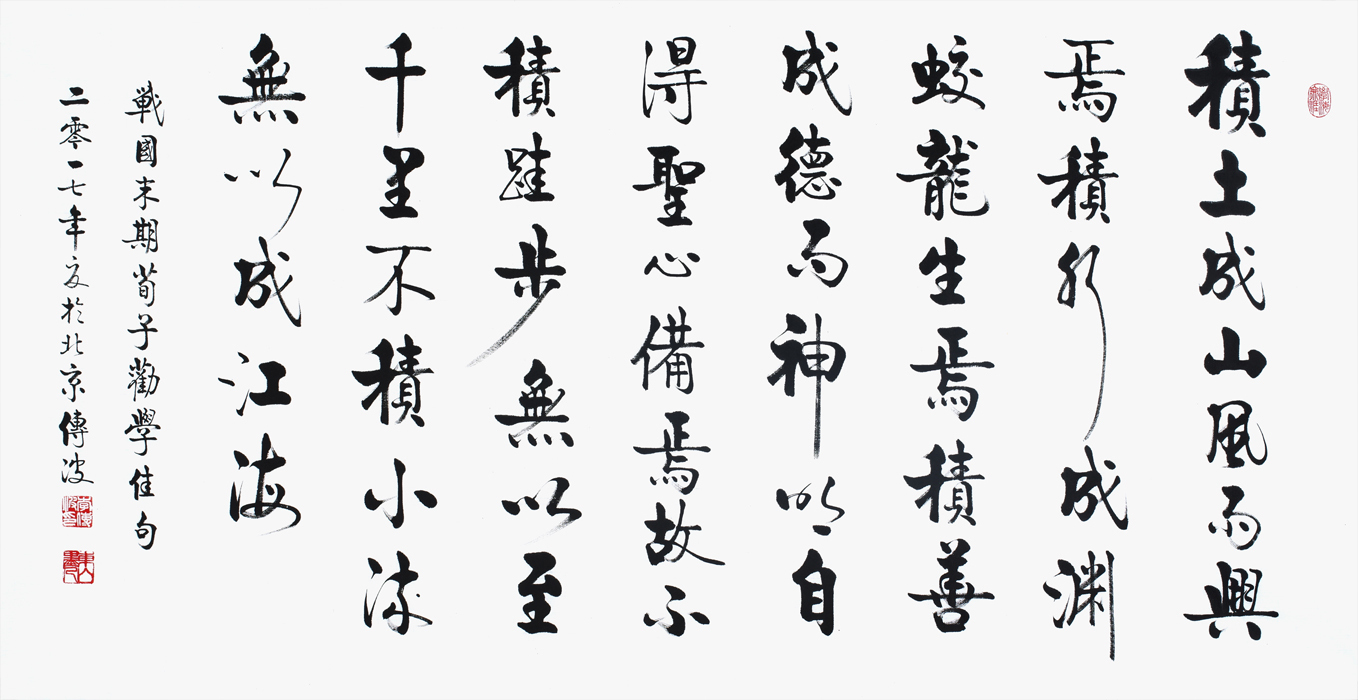 積土成山風雨興
焉積水成淵
蛟龍生焉積善
成德而神明自
得聖心備焉故不
積跬步無以至
千里不積小流
無以成江海
戰國末期荀子勸學佳句
二零一七年夏於北京傳波